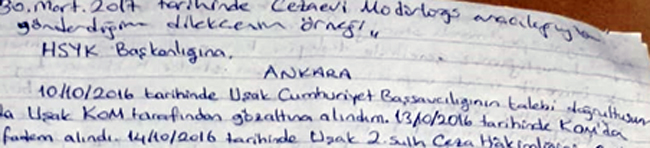 30. Mart. 2017 tarihinde Cezaevi Müdürlüğü aracılığıyla
gönderdiğim dilekçemin örneği,,
HSYK Başkanlığına,
ANKARA
10/10/2016 tarihinde Uşak Cumhuriyet Başsavcılığının talebi doğrultusun
da Uşak KOM tarafından gözaltına alındım. 13/10/2016 tarihinde Kom'da
ifadem alındı. 14/10/2016 tarihinde Uşak 2. Sulh Ceza Hakimliği